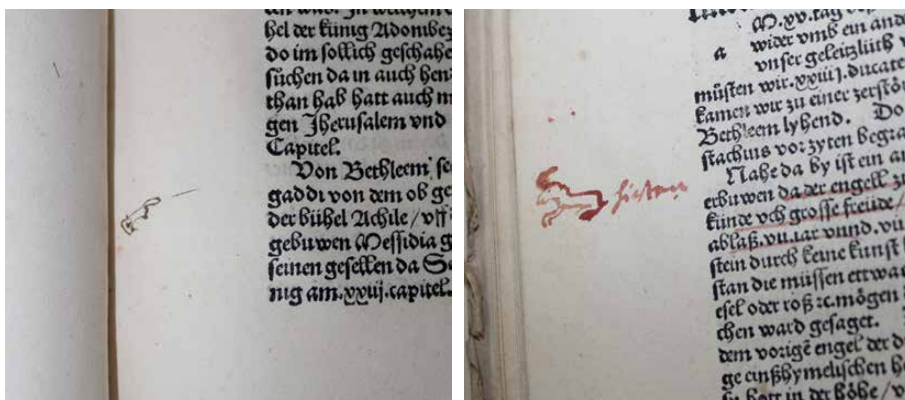 hel der künig Adombez
do im sollich geschahe
sůchen da in auch hen
than hab hatt auch m
gen Jherusalem vnd
Capitel.
Von Bethleem se
gaddi von dem ob ge
der bühel Achile / vff
gebuwen Messidia g
seinen gesellen da Se
nig am .xxiij. capitel.
M.xv.tag
a wider vmb ein ande
vnser geleitzlüth
müsten wir .xxiiij. ducate
kamen wir zu einer zerstö
Bethleem lyhend. Do
stachius vor zyten begra
Nahe da by ist ein a
erbuwen da der engell z
künde vch grosse freüde /
ablaß.vii.iar vnnd.vii
stein durch keine kunst
stan die müssen ettwa
esel oder roß ⁊c. mögen
chen ward gesaget.
dem vorigē engel der d
ge einßhymelischen he
hirten